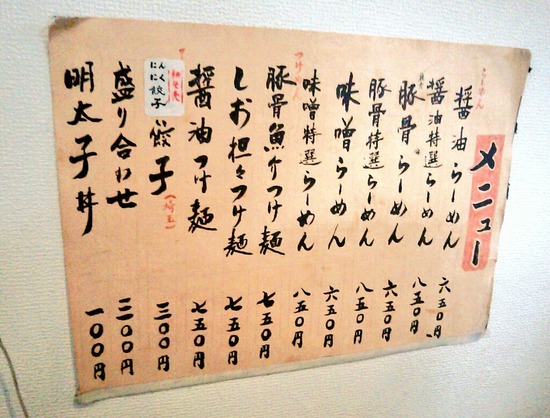 メニュー
らーめん
醤油らーめん 六五〇円
醤油特選らーめん 八五〇円
豚骨らーめん 六五〇円
豚骨特選らーめん 八五〇円
味噌らーめん 六五〇円
味噌特選らーめん 八五〇円
つけめん
豚骨魚介つけ麺 七五〇円
しお担々つけ麺 七五〇円
醤油つけ麺 七五〇円
餃子 三〇〇円
にんにく餃子
盛り合わせ 三〇〇円
明太子丼 一〇〇円